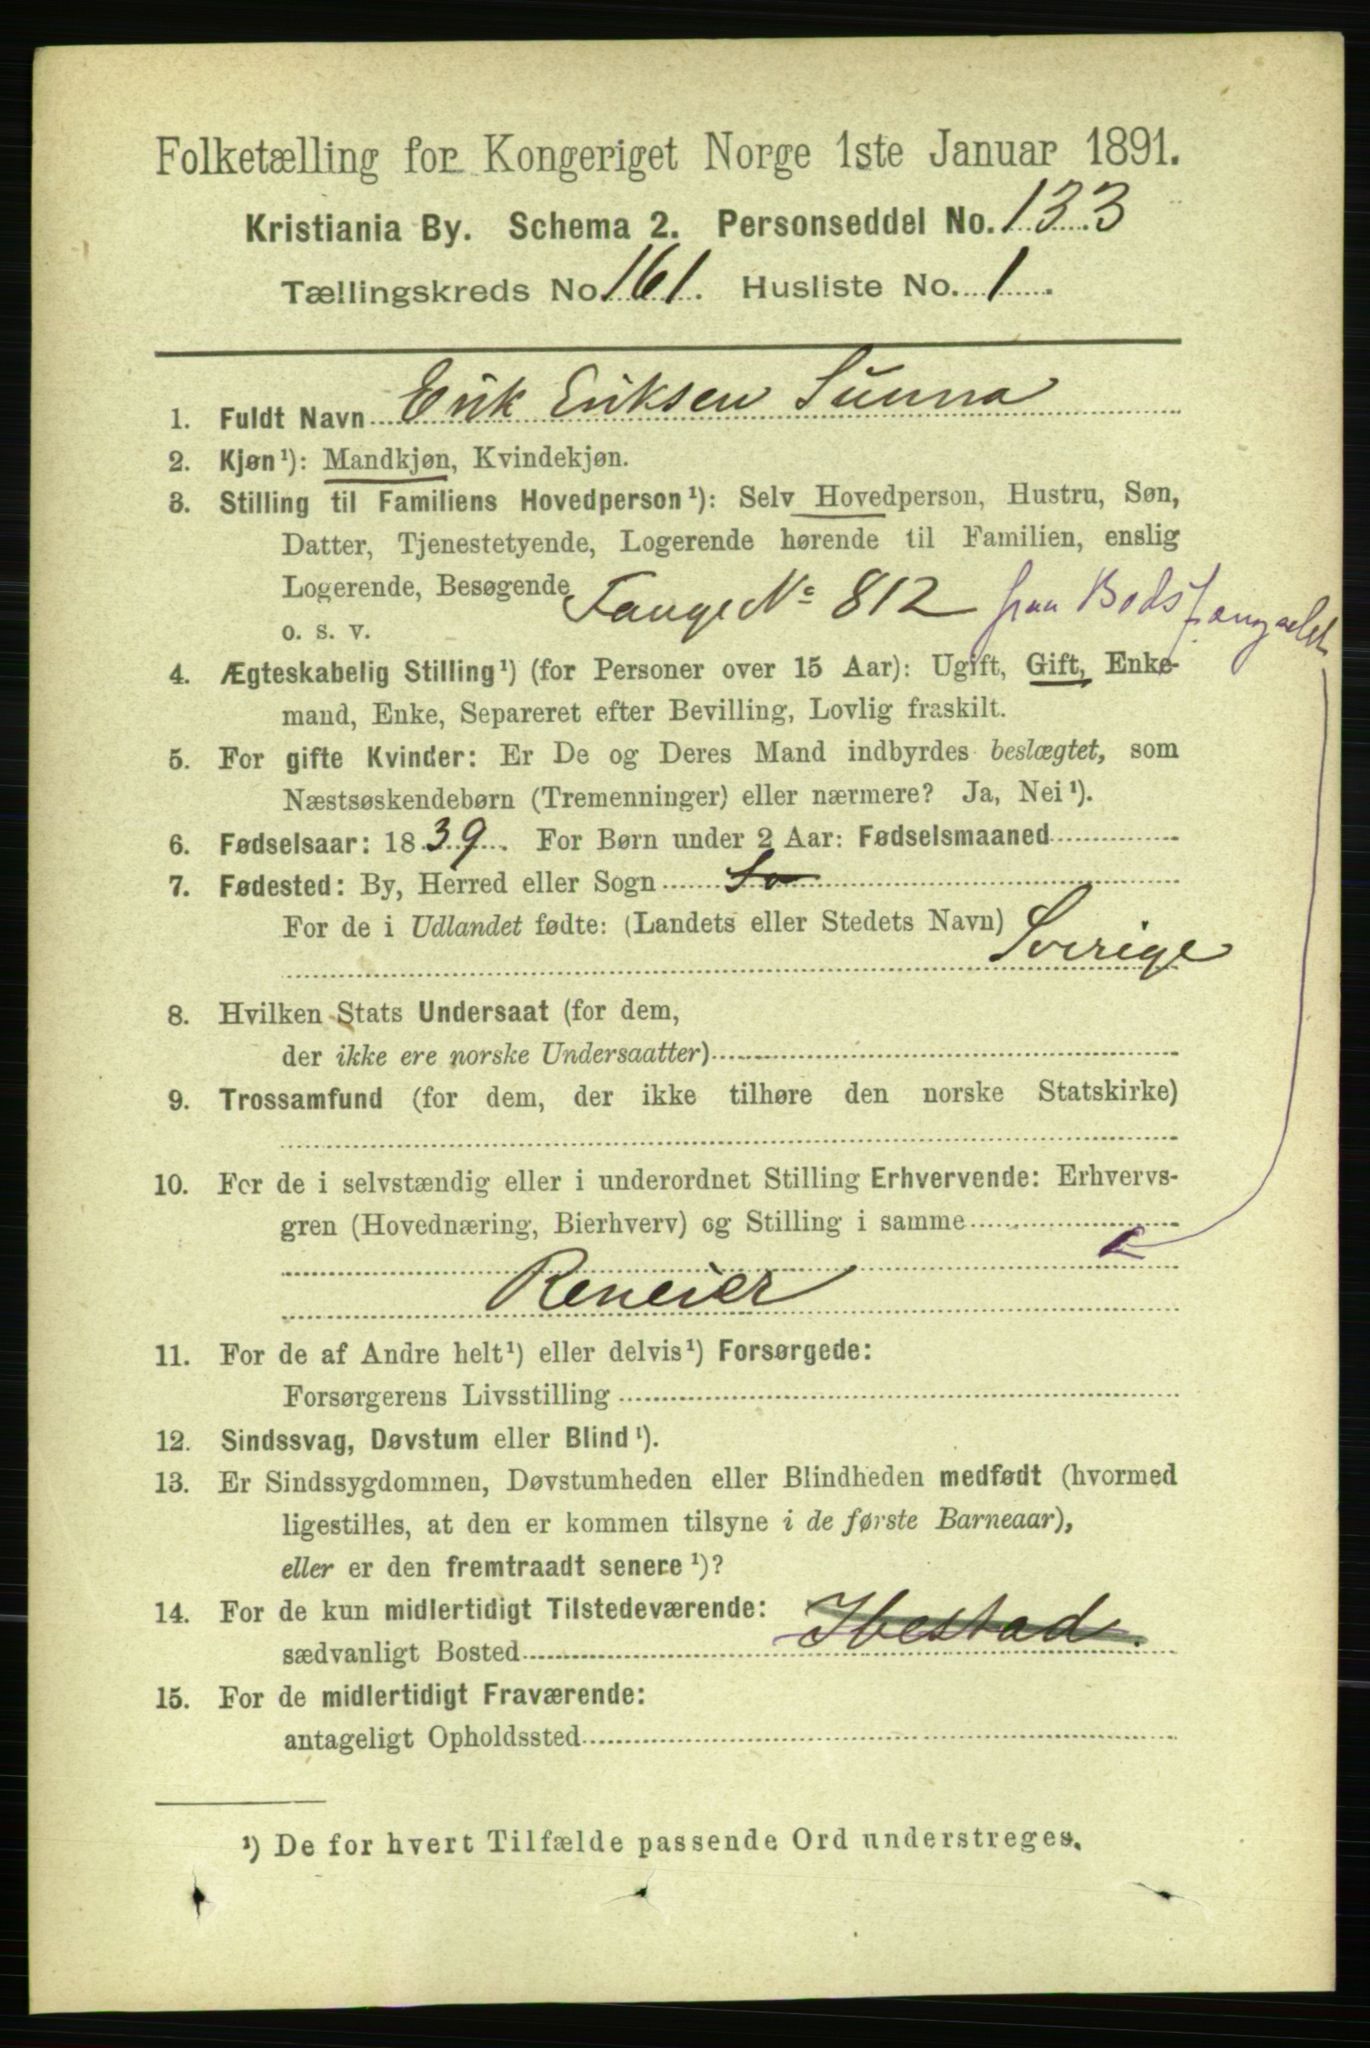 Folketælling for Kongeriget Norge 1ste Januar 1891.
Kristiania By. Schema 2. Personseddel No. 133
Tællingskreds No. 161. Husliste No. 1.
1. Fuldt Navn Erik Eriksen Sunna
2. Kjøn¹): Mandkjøn, Kvindekjøn.
3. Stilling til Familiens Hovedperson¹): Selv Hovedperson, Hustru, Søn,
Datter, Tjenestetyende, Logerende hørende til Familien, enslig
Logerende, Besøgende Fange No 812 fraa Bodsfængselet
o. s. v.
4. Ægteskabelig Stilling¹) (for Personer over 15 Aar): Ugift, Gift, Enke-
mand, Enke, Separeret efter Bevilling, Lovlig fraskilt.
5. For gifte Kvinder: Er De og Deres Mand indbyrdes beslægtet, som
Næstsøskendebørn (Tremenninger) eller nærmere? Ja, Nei¹).
6. Fødselsaar: 1839. For Børn under 2 Aar: Fødselsmaaned
7. Fødested: By, Herred eller Sogn
For de i Udlandet fødte: (Landets eller Stedets Navn) Sverige
8. Hvilken Stats Undersaat (for dem,
der ikke ere norske Undersaatter)
9. Trossamfund (for dem, der ikke tilhøre den norske Statskirke)
10. For de i selvstændig eller i underordnet Stilling Erhvervende: Erhvervs-
gren (Hovednæring, Bierhverv) og Stilling i samme
Reneier
11. For de af Andre helt¹) eller delvis¹) Forsørgede:
Forsørgerens Livsstilling
12. Sindssvag, Døvstum eller Blind¹).
13. Er Sindssygdommen, Døvstumheden eller Blindheden medfødt (hvormed
ligestilles, at den er kommen tilsyne i de første Barneaar),
eller er den fremtraadt senere¹)?
14. For de kun midlertidigt Tilstedeværende:
sædvanligt Bosted Ibestad.
15. For de midlertidigt Fraværende:
antageligt Opholdssted
¹) De for hvert Tilfælde passende Ord understreges.